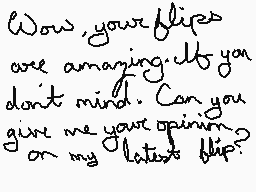 Wow, your flips
are amazing. If you
don't mind. Can you
give me your opinion
on my latest flip?